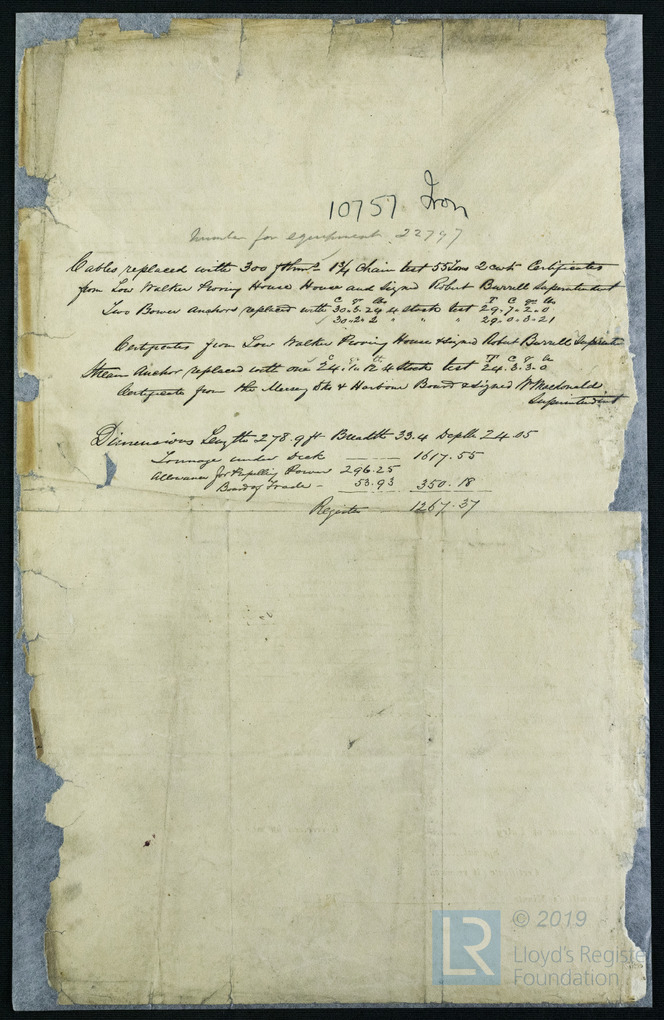 10757 Iron
Number for equipment 22797
Cables replaced with 300 fthms 1 3/4 Chain test 55 Tons 2 cwt Certificates
from Low Walker Proving House House and Signed Robert Burrell Superintendent
C qr lbs T C qr lbs
Two Bower Anchors replaced with 30.3.24 & stock test 29.7.2.0
30.2.2 " " " 29.0.3.21
Certificates from Low Walker Proving House & signed Robert Burrell
Stream Anchor replaced with one & stock test 24.3.3.0
Certificate from the Mersey Dks & Harbour Board & signed W Macdonald
Superintendent
Dimensions Length 278.9 ft Breadth 33.4 Depth 24.05
Tonnage under deck 1617.55
Allowance for Propelling Power 296.25
Board of Trade - 53.93 350.18
Register 1267.37
LR © 2019
Lloyd's Registe
Foundation